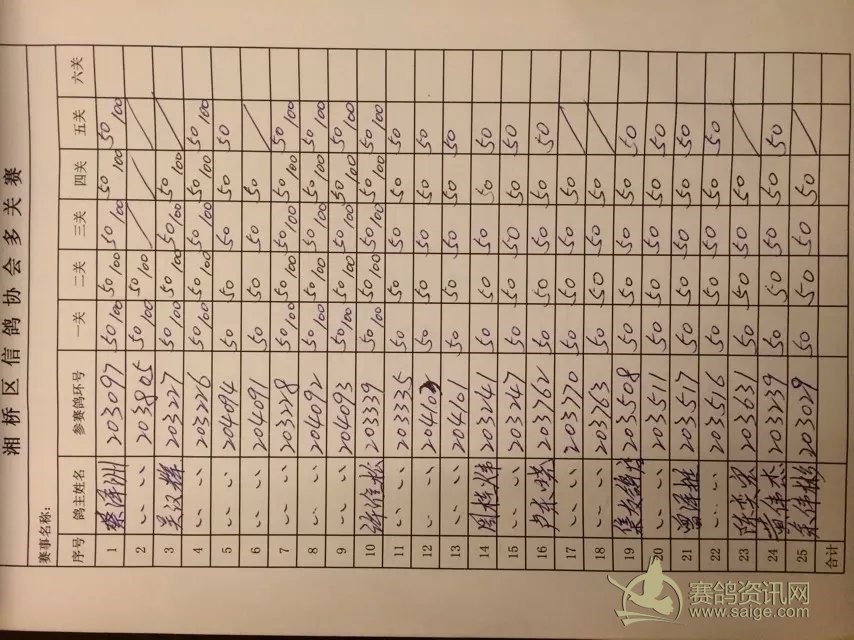 湘桥区信鸽协会多关赛
赛事名称:
序号 鸽主姓名 参赛鸽环号 一关 二关 三关 四关 五关 六关
1 蔡泽洲 203097 50/100 50/100 50/100 50 100 50 100
2 〃 203805 50/100 50/100 / / /
3 吴汉辉 203227 50/100 50/100 50/100 50/100 /
4 〃 203226 50/100 50/100 50/100 50/100 50 100
5 〃 204094 50 50 50 50 50
6 〃 204091 50 50 50 50 /
7 〃 203228 50/100 50/100 50/100 50/100 50/100
8 〃 204092 50/100 50/100 50/100 50/100 50/100
9 〃 204093 50/100 50/100 50/100 50/100 50/100
10 203339 50/100 50/100 50/100 50/100 50/100
11 〃 203335 50 50 50 50 50
12 〃 204102 50 50 50 50 50
13 〃 204101 50 50 50 50 50
14 203241 50 50 50 50 50
15 〃 203247 50 50 50 50 50
16 203762 50 50 50 50 50
17 〃 203770 50 50 50 50 /
18 〃 203763 50 50 50 50 /
19 203508 50 50 50 50 50
20 〃 203511 50 50 50 50 50
21 203517 50 50 50 50 50
22 〃 203516 50 50 50 50 50
23 203631 50 50 50 50 /
24 黄伟杰 203239 50 50 50 50 50
25 203029 50 50 50 50 /
合计
赛鸽资讯网
www.saige.com